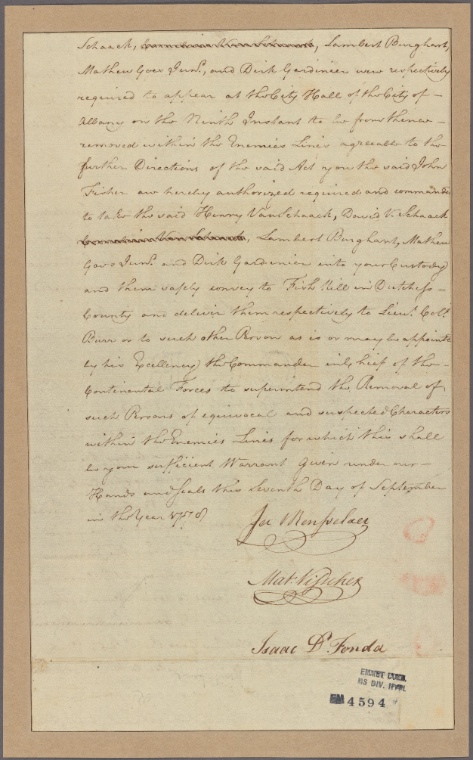 Schaack, Cornelius Van Schaack, Lambert Burghart,
Mathew Goes Junr., and Dirk Gardineer were respectively
required to appear at the City Hall of the City of
Albany on the Ninth Instant to be from thence
removed within the Enemies Lines agreeable to the
further Directions of the said Act you the said John
Fisher are hereby authorized required and commanded
to take the said Henry Van Schaack, David V. Schaack
Cornelius Van Schaack, Lambert Burghart, Mathew
Goes Junr. and Dirk Gardinier into your Custody
and them safely convey to Fish Kill in Dutchess
County and deliver them respectively to Lieut. Coll.
Burr or to such other Person as is or may be appointed
by his Excellency the Commander in Chief of the
Continental Forces to superintend the Removal of
such Persons of equivocal and suspected Characters
within the Enemies Lines for which this shall
be your sufficient Warrant given under our
Hands and Seals this Seventh Day of September
in the Year 1778
Mat Visscher
Isaac D. Fonda
EMMET COLL.
MS DIV. NYPL
EM 4594